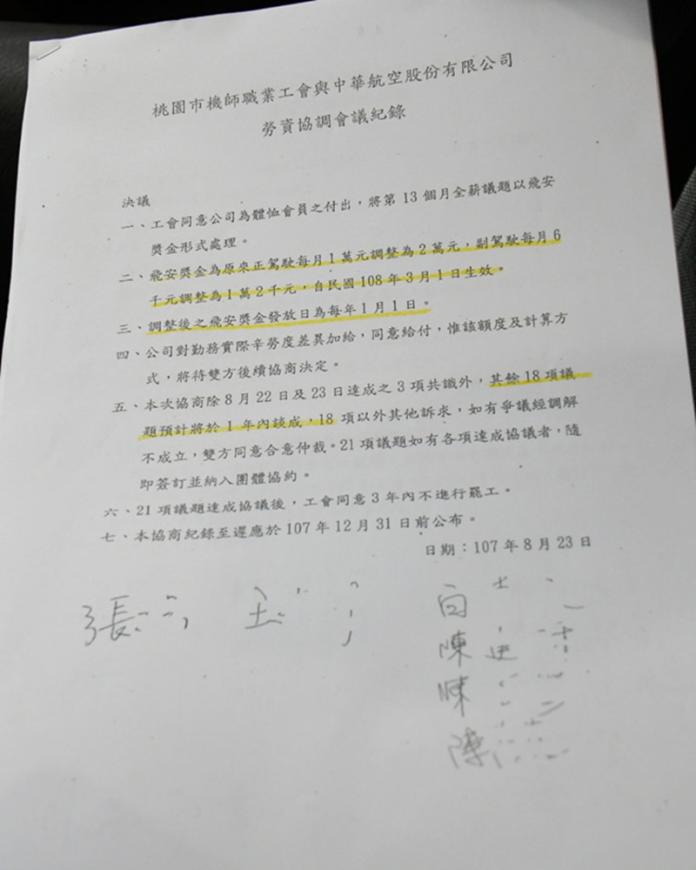 桃園市機師職業工會與中華航空股份有限公司
勞資協調會議紀錄
決議
一、工會同意公司為體恤會員之付出，將第 13 個月全薪議題以飛安
獎金形式處理。
二、飛安獎金為原來正駕駛每月 1 萬元調整為 2 萬元，副駕駛每月 6
千元調整為 1 萬 2 千元，自民國 108 年 3 月 1 日生效。
三、調整後之飛安獎金發放日為每年 1 月 1 日。
四、公司對勤務實際辛勞度差異加給，同意給付，惟該額度及計算方
式，將待雙方後續協商決定。
五、本次協商除 8 月 22 日及 23 日達成之 3 項共識外，其餘 18 項議
題預計將於 1 年內談成，18 項以外其他訴求，如有爭議經調解
不成立，雙方同意合意仲裁。21 項議題如有各項達成協議者，隨
即簽訂並納入團體協約。
六、21 項議題達成協議後，工會同意 3 年內不進行罷工。
七、本協商紀錄至遲應於 107 年 12 月 31 日前公布。
日期：107 年 8 月 23 日
張
白
陳
陳
陳